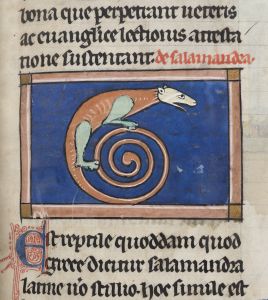 bona que perpetrant ueteris
ac euanglice lectionis attesta
tione sustentant. de salamandra.
Est reptile quoddam quod
grece dicitur salamandra
latine uo stillio. hoc simule est